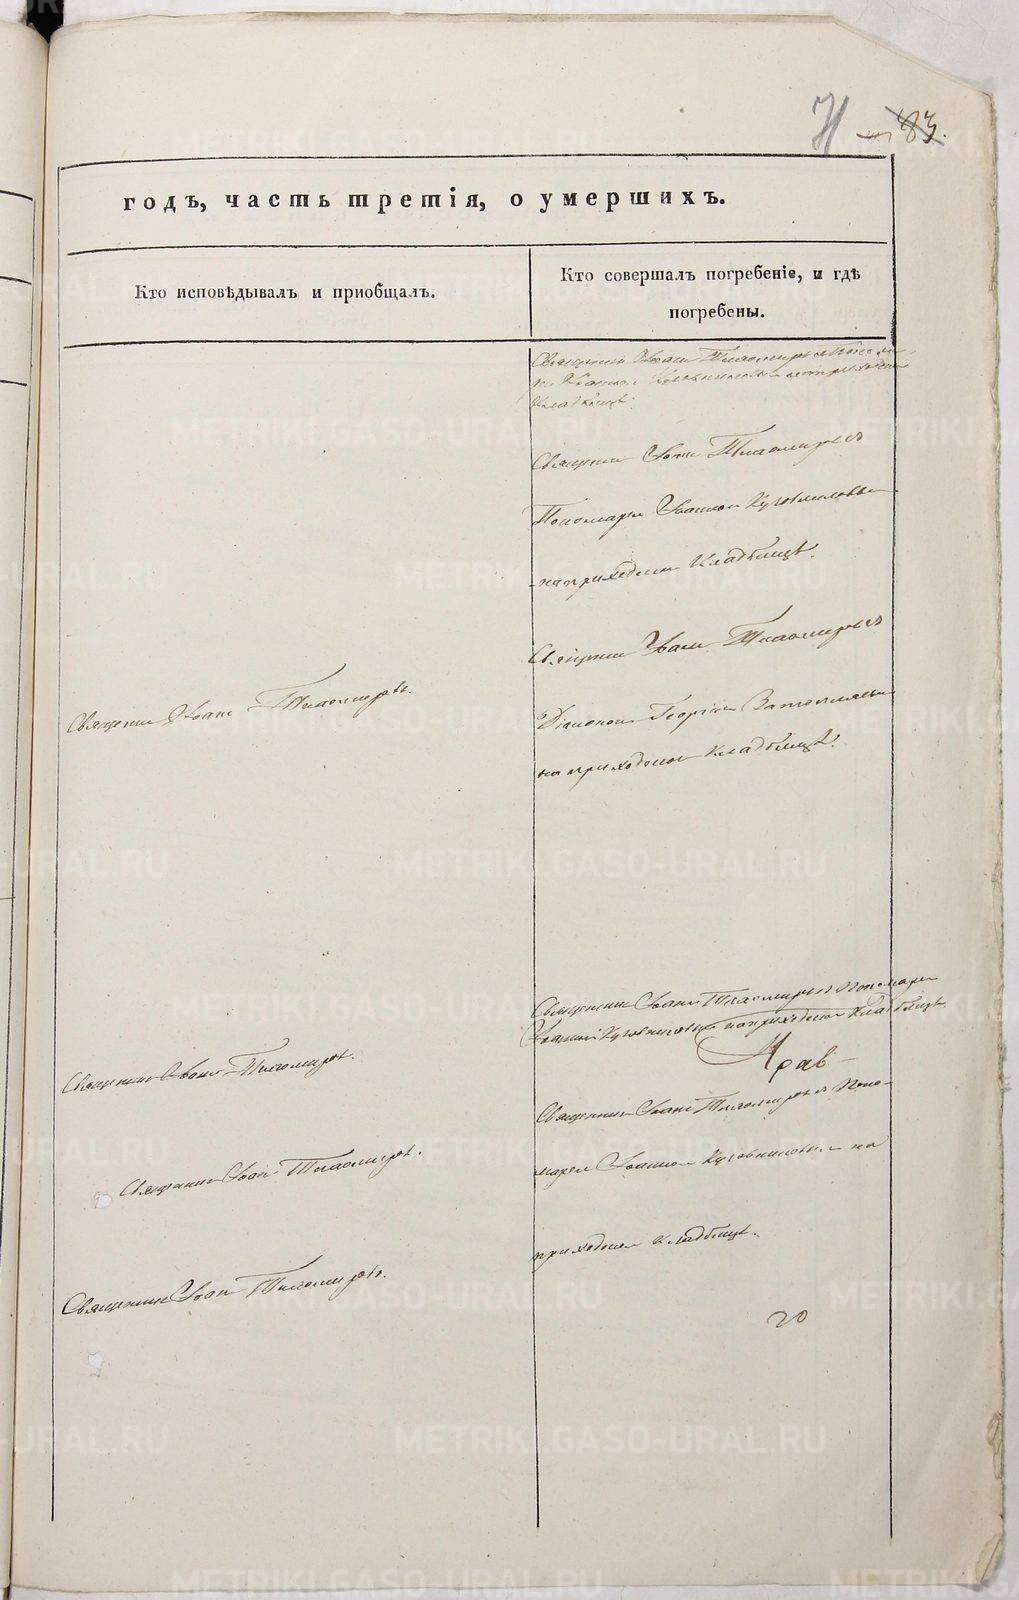 71
83.
годъ, часть третія, о умершихъ.
Кто исповѣдывалъ и пріобщалъ.
Кто совершалъ погребеніе, и гдѣ
погребены.
Священникъ Іоаннъ Тихомировъ
Кладбищѣ.
Священникъ Іоаннъ Тихомировъ съ
Пономаремъ Іоанномъ
на приходскомъ Кладбищѣ.
Священникъ Іоаннъ Тихомировъ съ
Священникъ Іоаннъ Тихомировъ.
Діакономъ Георгіемъ
на приходскомъ Кладбищѣ.
Священникъ Іоаннъ Тихомировъ съ Пономаремъ
Іоанномъ на приходскомъ Кладбищѣ
Священникъ Іоаннъ Тихомировъ.
Священникъ Іоаннъ Тихомировъ съ Поно-
Священникъ Іоаннъ Тихомировъ.
маремъ Іоанномъ на
приходскомъ кладбищѣ.
Священникъ Іоаннъ Тихомировъ.
20
METRIKI.GASO-URAL.RU